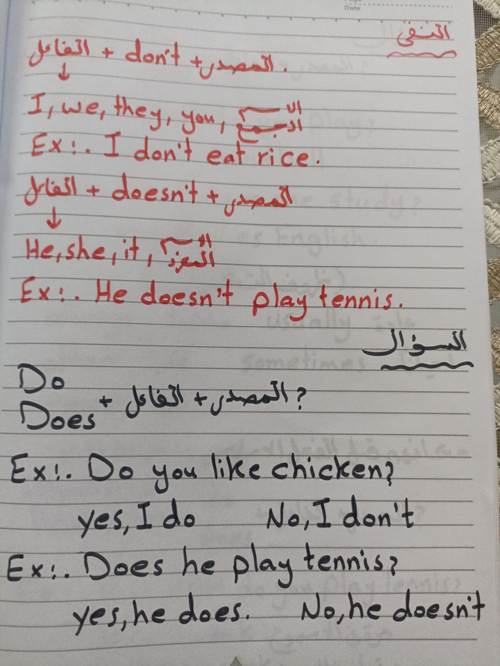 Date
النفى
الفاعل + don't + المصدر.
↓
I, we, they, you, الاسم الجمع
Ex:. I don't eat rice.
الفاعل + doesn't + المصدر
↓
He, she, it, الاسم المفرد
Ex:. He doesn't play tennis.
السؤال
Do
Does + الفاعل + المصدر ?
Ex:. Do you like chicken?
yes, I do No, I don't
Ex:. Does he play tennis?
yes, he does. No, he doesn't